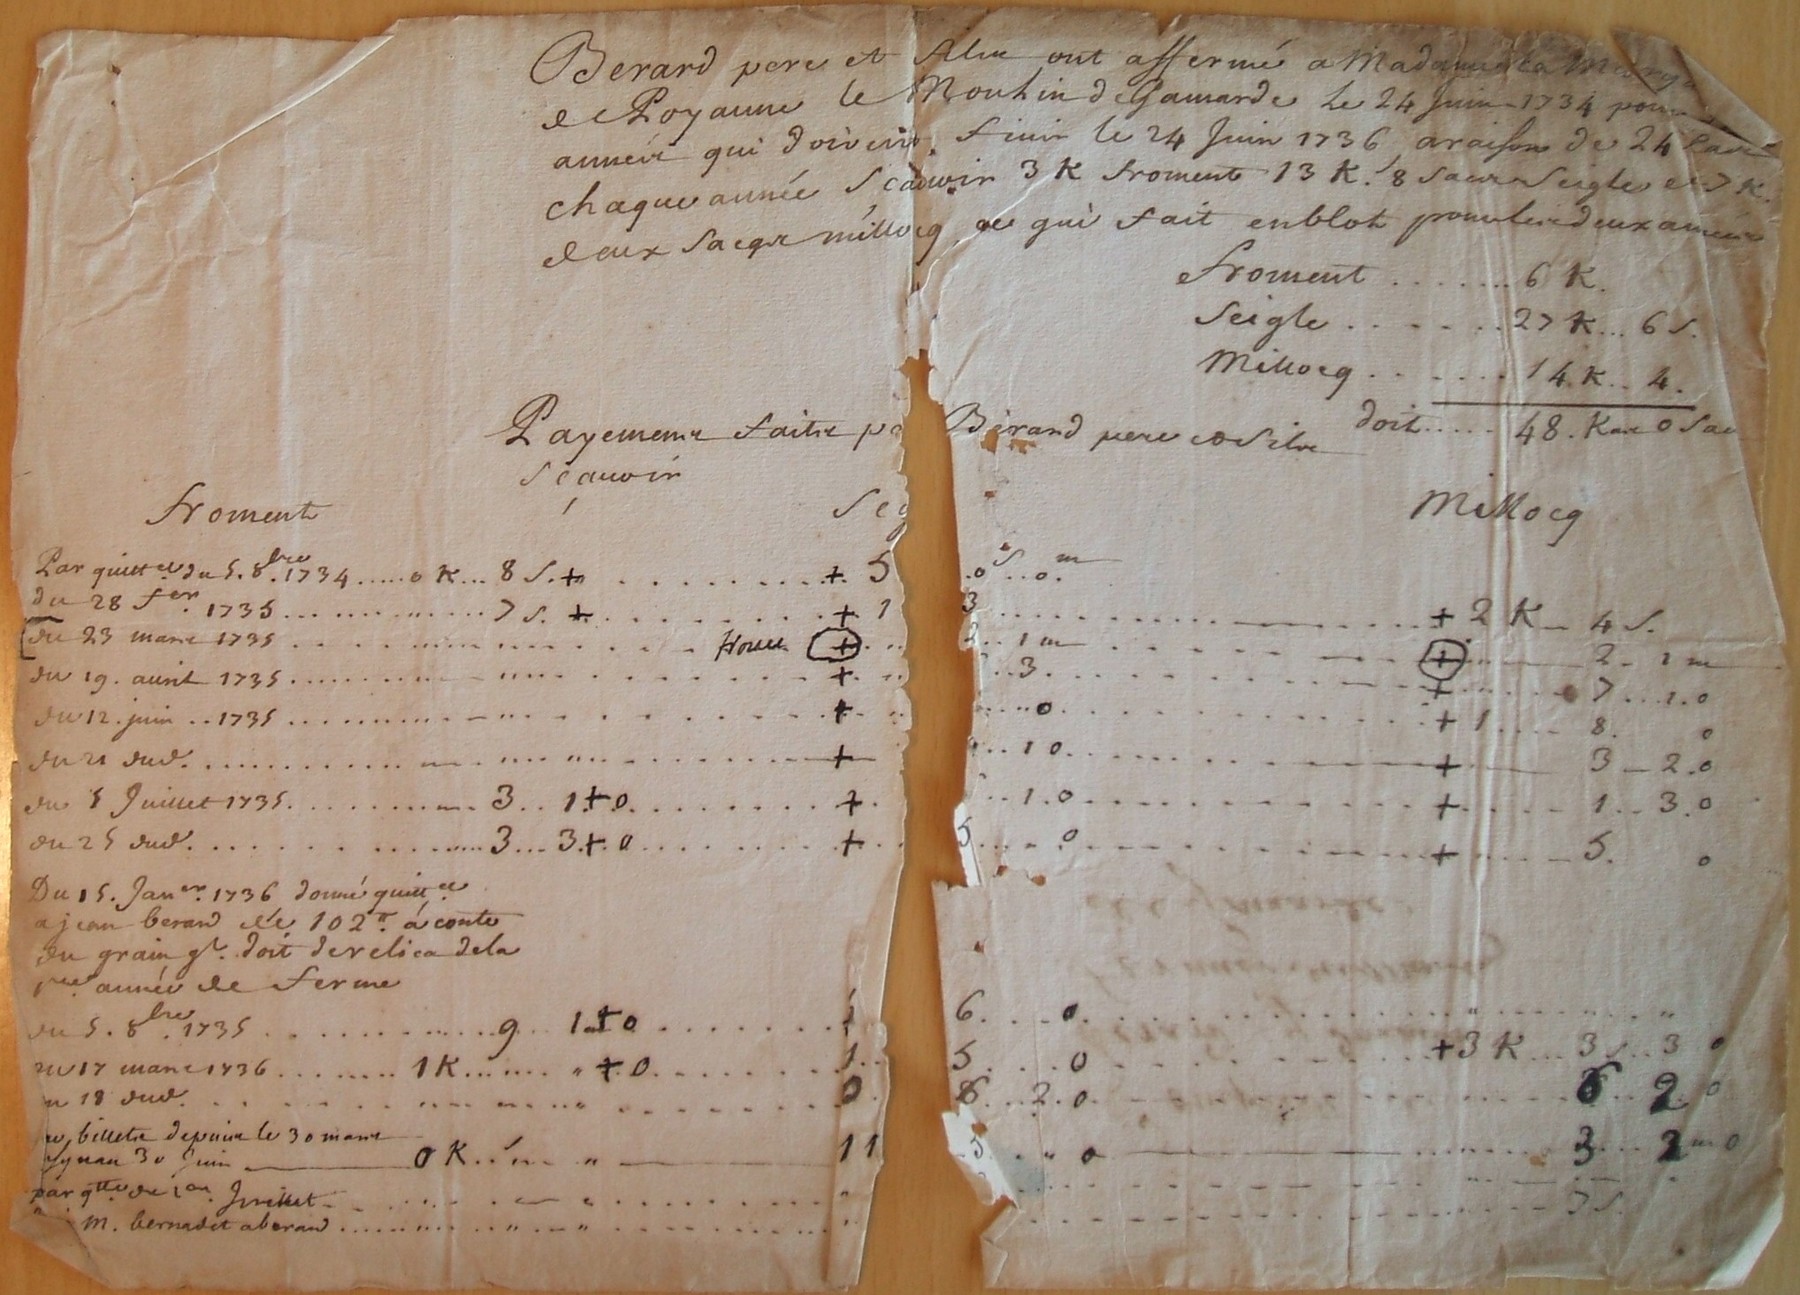 Berard pere et filz ont affermé a Madame la
de Poyanne le Moulin de Gamarde Le 24 Juin 1734 pour
année qui doivent finir le 24 Juin 1736 araison de 24
chaque année Scauoir 3 K froment 13 K. 8 sacqs Seigle et 7 K.
deux sacqs millocq, ce qui fait enblot pour les deux années
froment ....... 6 K.
Seigle ...... 27 K... 6 S.
Millocq ...... 14 K... 4.
doit ..... 48. K 0 Sac
Payemens faits pa Bérard pere et filz
Scauoir
froment Seg Millocq
Par quittce du 5. 8bre 1734 ...... 0 K... 8 S. + ........ + 5 .0 S ..0. m
du 28 fer 1735 ............ 7 S. + ........ + 1 3 ............ + 2 K 4 S.
du 23 mars 1735 ............ + .. 2.. 1 m ...... + ...... 2 - 1 m
du 19. auril 1735 ............ + .. ..3. ........ + ...... 7 ... 1.0
du 12. juin .. 1735 ............ + .. ....0 ........ + 1 .... 8. 0
du 21 dud. ............ + ..10. ........ + ...... 3 - 2.0
du 5 Juillet 1735. ........ 3.. 1.+.0 ........ + . ..1.0 ........ + ...... 1.. 3.0
du 25 dud. ............ 3... 3.+. 0 ........ + ... 5 ... 0 ........ + ...... 5. 0
Du 15. Janer. 1736 donné quittce
a jean berard de 102 tt. a conte
du grain ql. doit de reliqa dela
pre année de ferme
du 5. 8bre 1735 ............ 9 .. 1.+0 ........ 1 6. ... 0
du 17 mars 1736 ........ 1 K ...... + .0 ........ 1.. 5. ... 0 ........ + 3 K ... 3 S.. 3 0
u 18 dud. ............ 0 . 6... 2.0 ........ 6 2 0
billets depuis le 30 mars
30 juin 0 K ...... 11 5 . " 0 ........ 3 .... 2 m 0
par qtte de Juillet ............
M. bernadet a berard ............ 7 S.